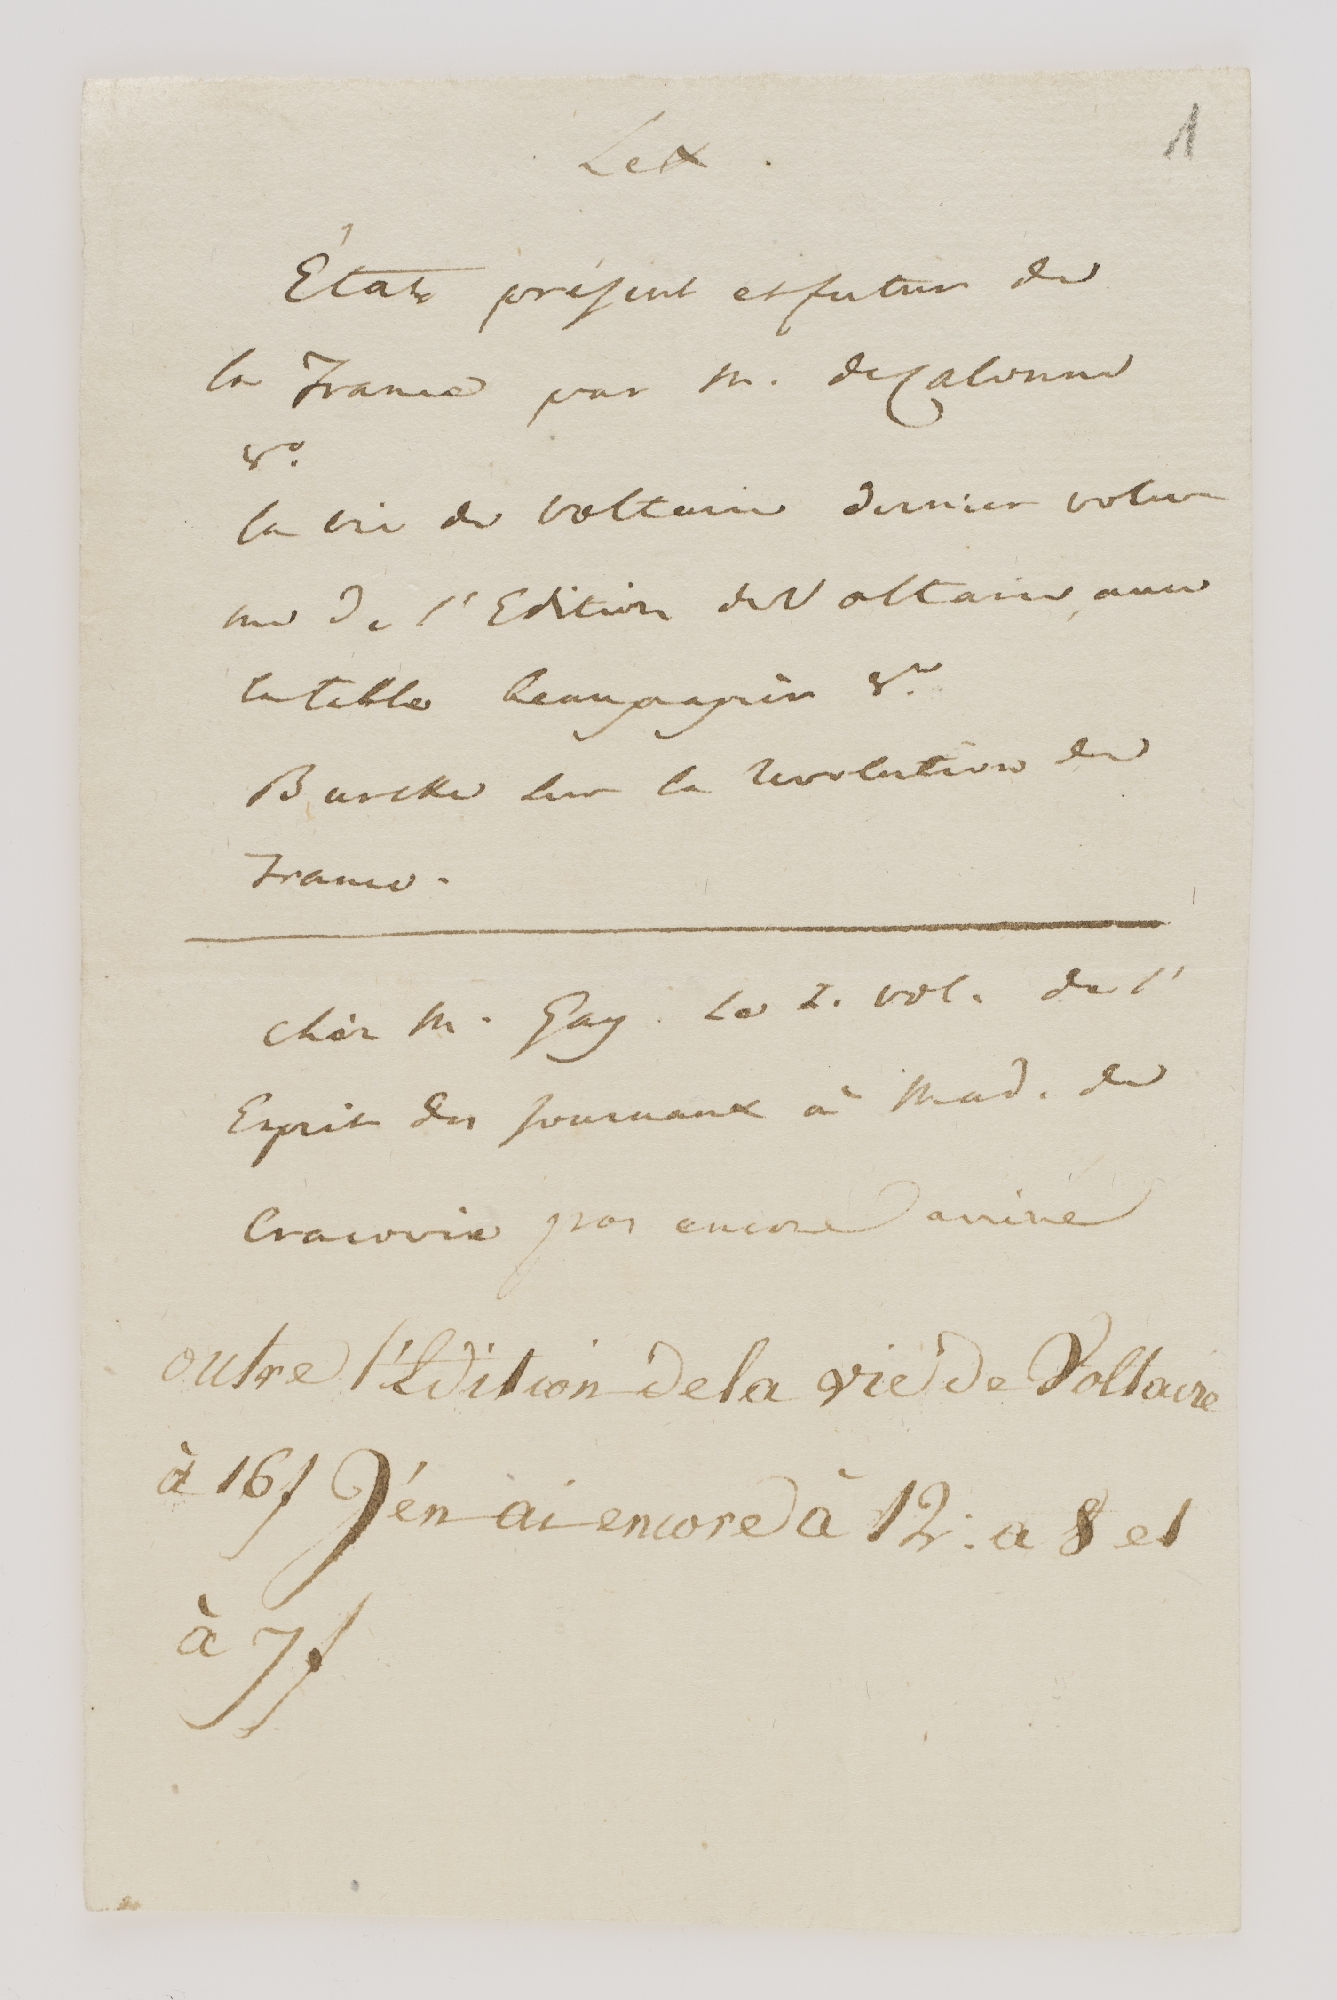 1
État présent et futur de
la France par M. de Calonne
8o.
la vie de Voltaire dernier volu
me de l'Edition de Voltaire avec
la table beau papier 8o.
Burcke sur la revolution de
France.
chèz M. Gay. Le 2. vol. de l'
Esprit des Journaux à Mad. de
Cracovie pas encore arrivé
outre l'Edition de la vie de Voltaire
à 16f J'én ai encore à 12: a 8 et
à 7f